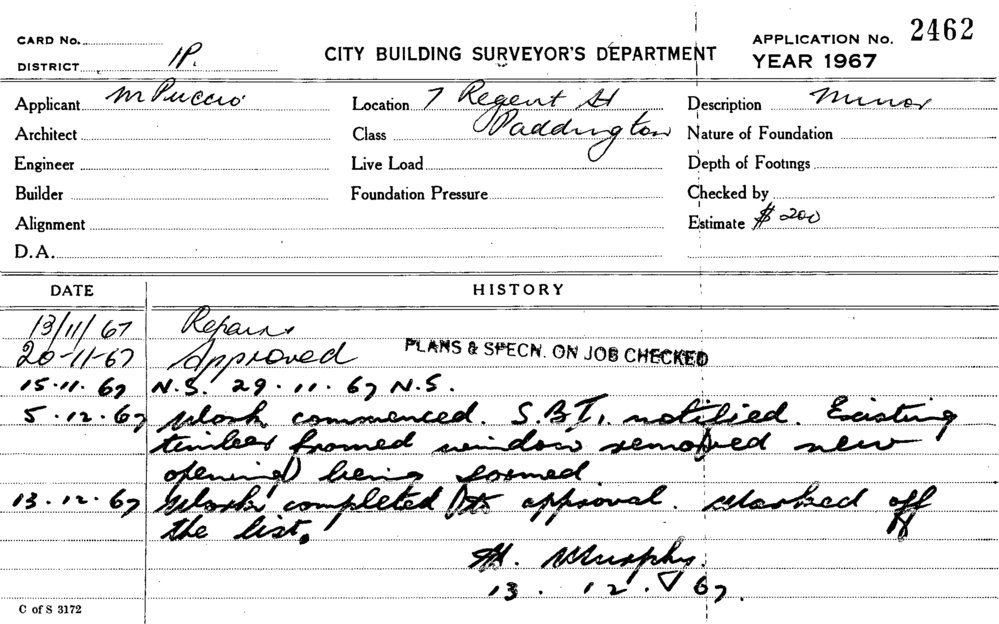 CARD No. APPLICATION No. 2462
DISTRICT 1P. CITY BUILDING SURVEYOR'S DEPARTMENT YEAR 1967
Applicant M Puccio Location 7 Regent St Description Minor
Architect Class Paddington Nature of Foundation
Engineer Live Load Depth of Footings
Builder Foundation Pressure Checked by
Alignment Estimate $ 200
D.A.
DATE HISTORY
13/11/67 Repairs
20-11-67 Approved PLANS & SPECN. ON JOB CHECKED
15.11.67 N.S. 29.11.67 N.S.
5.12.67 Work commenced. S.B.I. notified. Existing
timber framed window removed new
opening being formed
13.12.67 Work completed to approval. Marked off
the list.
Murphy.
13.12.67.
C of S 3172